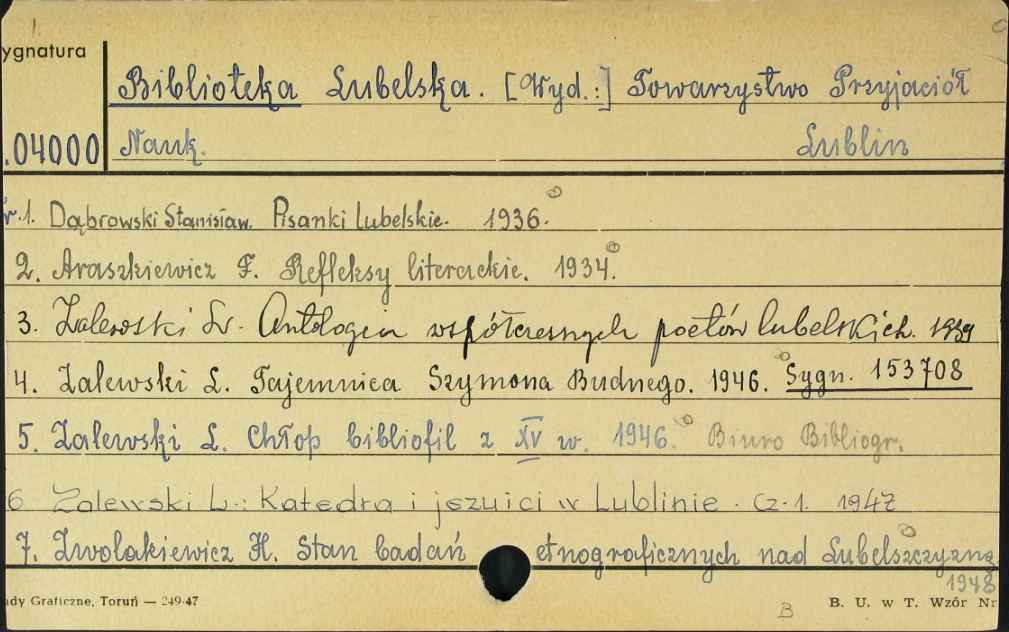 ygnatura
Biblioteka Lubelska. [Wyd.:] Towarzystwo Przyjaciół
.04000 Nauk. Lublin
1. Dąbrowski Stanisław. Pisanki Lubelskie. 1936.
2. Araszkiewicz F. Refleksy literackie. 1934.
3. Zalewski L. Antologia współczesnych poetów lubelskich. 1939
4. Zalewski L. Tajemnica Szymona Budnego. 1946. Sygn. 153708
5. Zalewski L. Chłop bibliofil z XV w. 1946. Biuro Bibliogr.
6 Zalewski L.: Katedra i jezuici w Lublinie. Cz. 1. 1947
7. Zwolakiewicz H. Stan badań etnograficznych nad Lubelszczyzną
1948
ady Graficzne, Toruń — 249-47 B B. U. w T. Wzór Nr